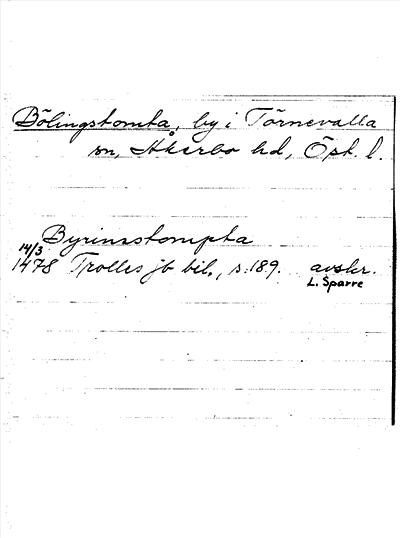 Bölingstomta, by i Törnevalla
sn, Åkerbo hd, Ög. l.
Byrinxstompta
14/3
1478 Trolles jb bil., s. 189. avskr.
L. Sparre